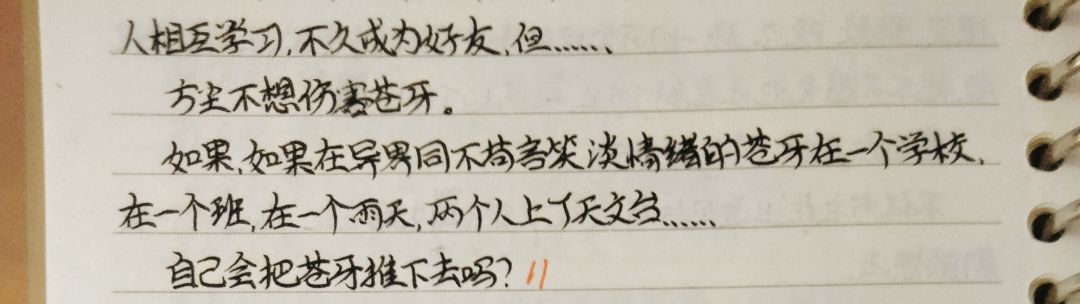 人相互学习,不久成为好友,但......
方尘不想伤害苍牙。
如果,如果在异界同不苟言笑淡情绪的苍牙在一个学校,
在一个班,在一个雨天,两个人上了天文台......
自己会把苍牙推下去吗? 11